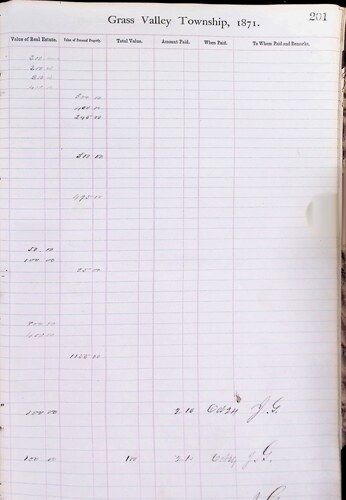 Grass Valley Township, 1871.
201
Value of Real Estate. Value of Personal Property. Total Value. Amount Paid. When Paid. To Whom Paid and Remarks.
200 00
200 00
500 00
245 00
500 00
475 00
50 00
100 00
25 00
1155 00
100 00 2.10 Oct 24 J. G.
100 00 100 2.10 Oct 24 J. G.